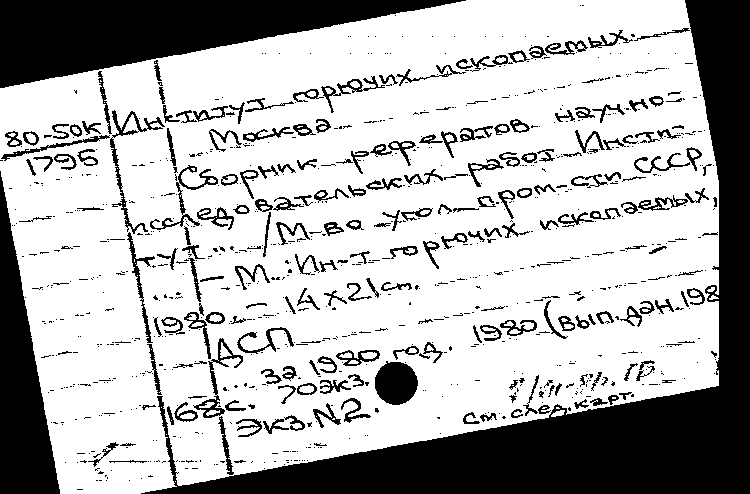 80-50К Институт горючих ископаемых.
1795 Москва
Сборник рефератов научно=
исследовательских работ Инсти=
тут... /М-во угол. пром-сти СССР,
... - М.: Ин-т горючих ископаемых,
1980. - 14х21см.
ДСП
... за 1980 год. 1980 (вып. дан. 198
168с. 70экз.
Экз. N2.
См. след. карт.